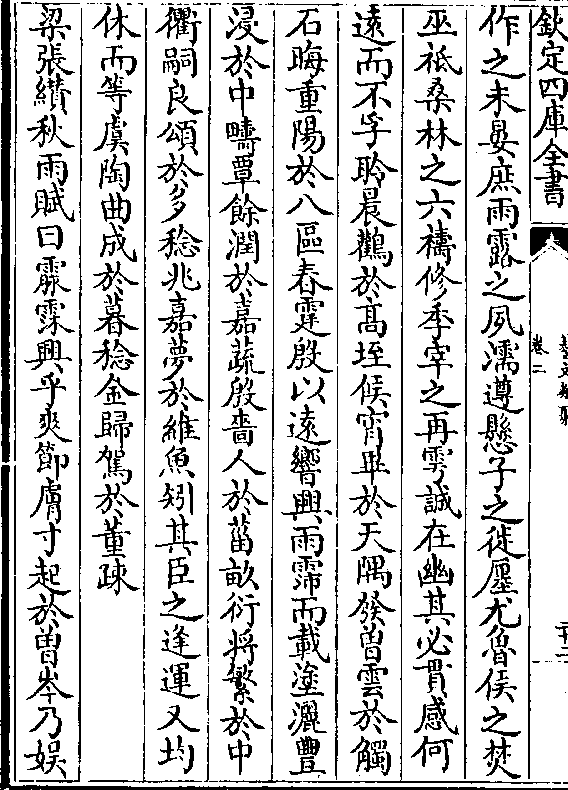 欽定四庫全書
藝文類聚
卷二
二十二
作之未晏庶雨露之夙濡遵懸子之徙㕓尤魯侯之焚
巫袛桑林之六禱修季宰之再雩誠在幽其必貫感何
遠而不孚聆晨鸛於髙垤候宵畢於天隅發曽雲於觸
石晦重陽於八區春霆殷以遠響興雨霈而載塗灑豐
浸於中疇覃餘潤於嘉蔬殷嗇人於菑畝衍將繁於中
衢嗣良頌於多稔兆嘉夢於維魚矧其臣之逢運又均
休而等虞陶曲成於暮稔金歸駕於董疎
梁張纉秋雨賦曰霢霂興乎爽節膚寸起於曽岑乃娱